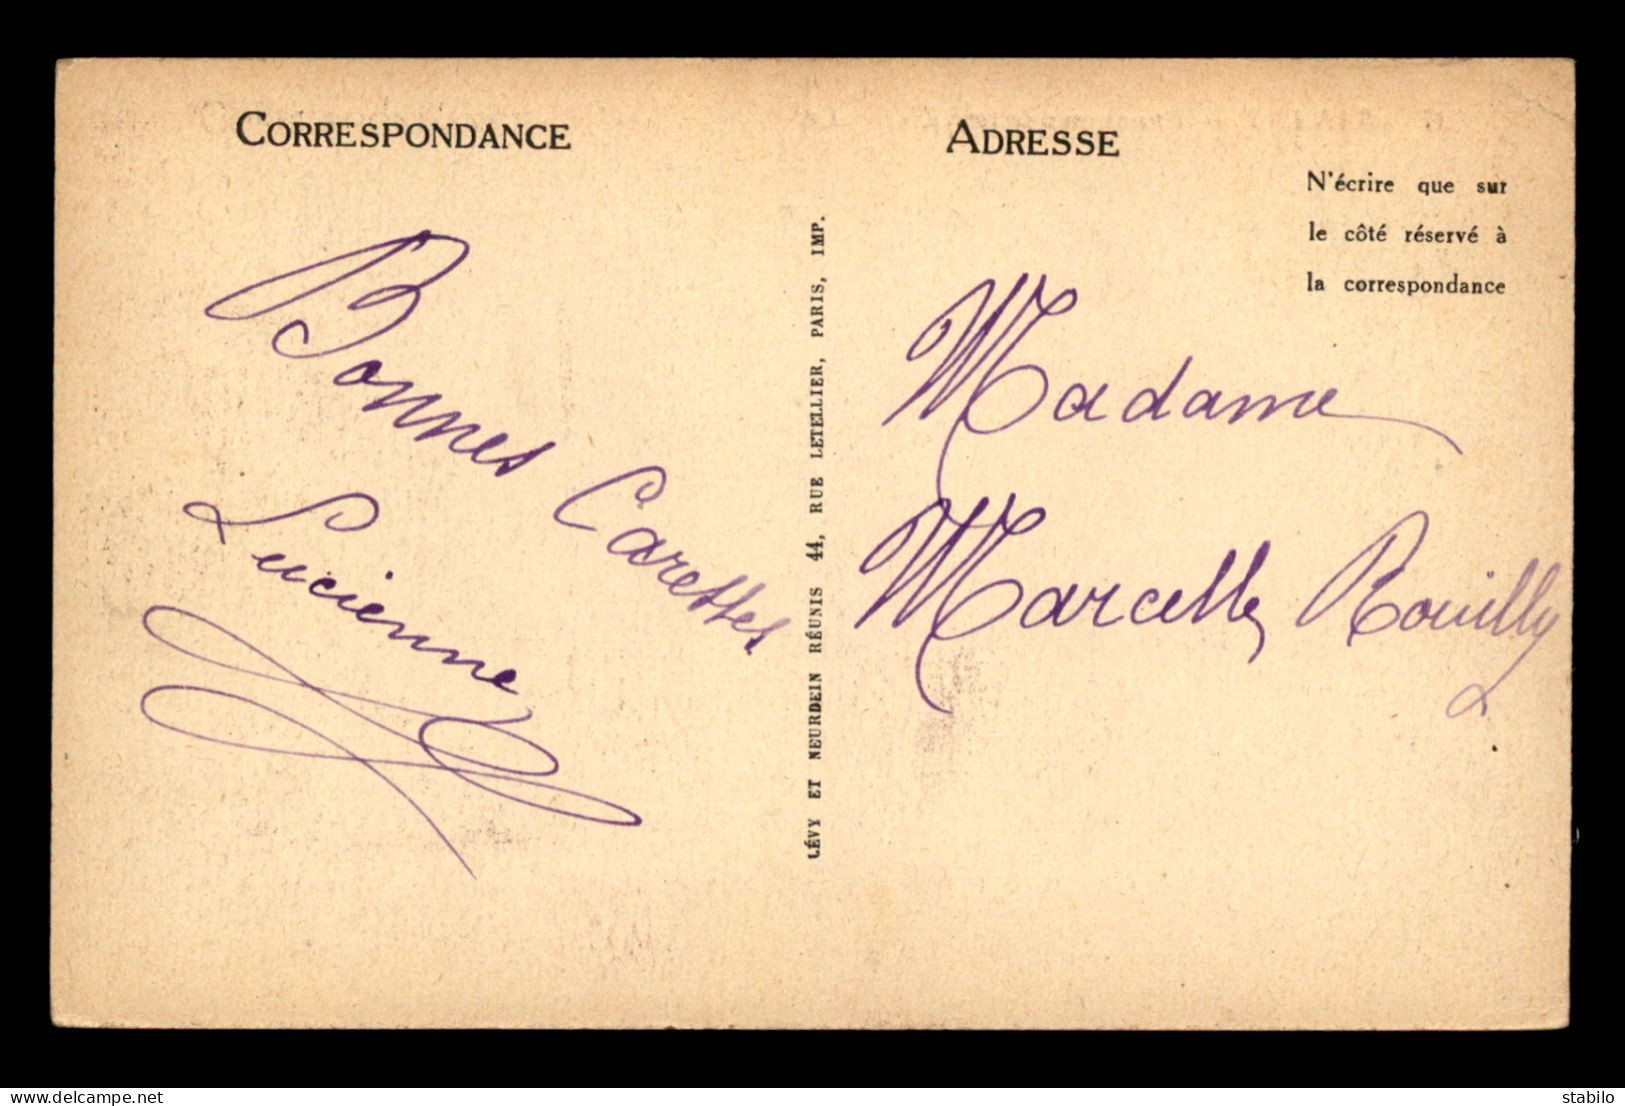 CORRESPONDANCE
Bonnes Caresses
Lucienne
LÉVY ET NEURDEIN RÉUNIS 44, RUE LETELLIER, PARIS, IMP.
ADRESSE
N'écrire que sur
le côté réservé à
la correspondance
Madame
Marcelle Rouilly
Luc-ienne.delcampe.net
stabilo